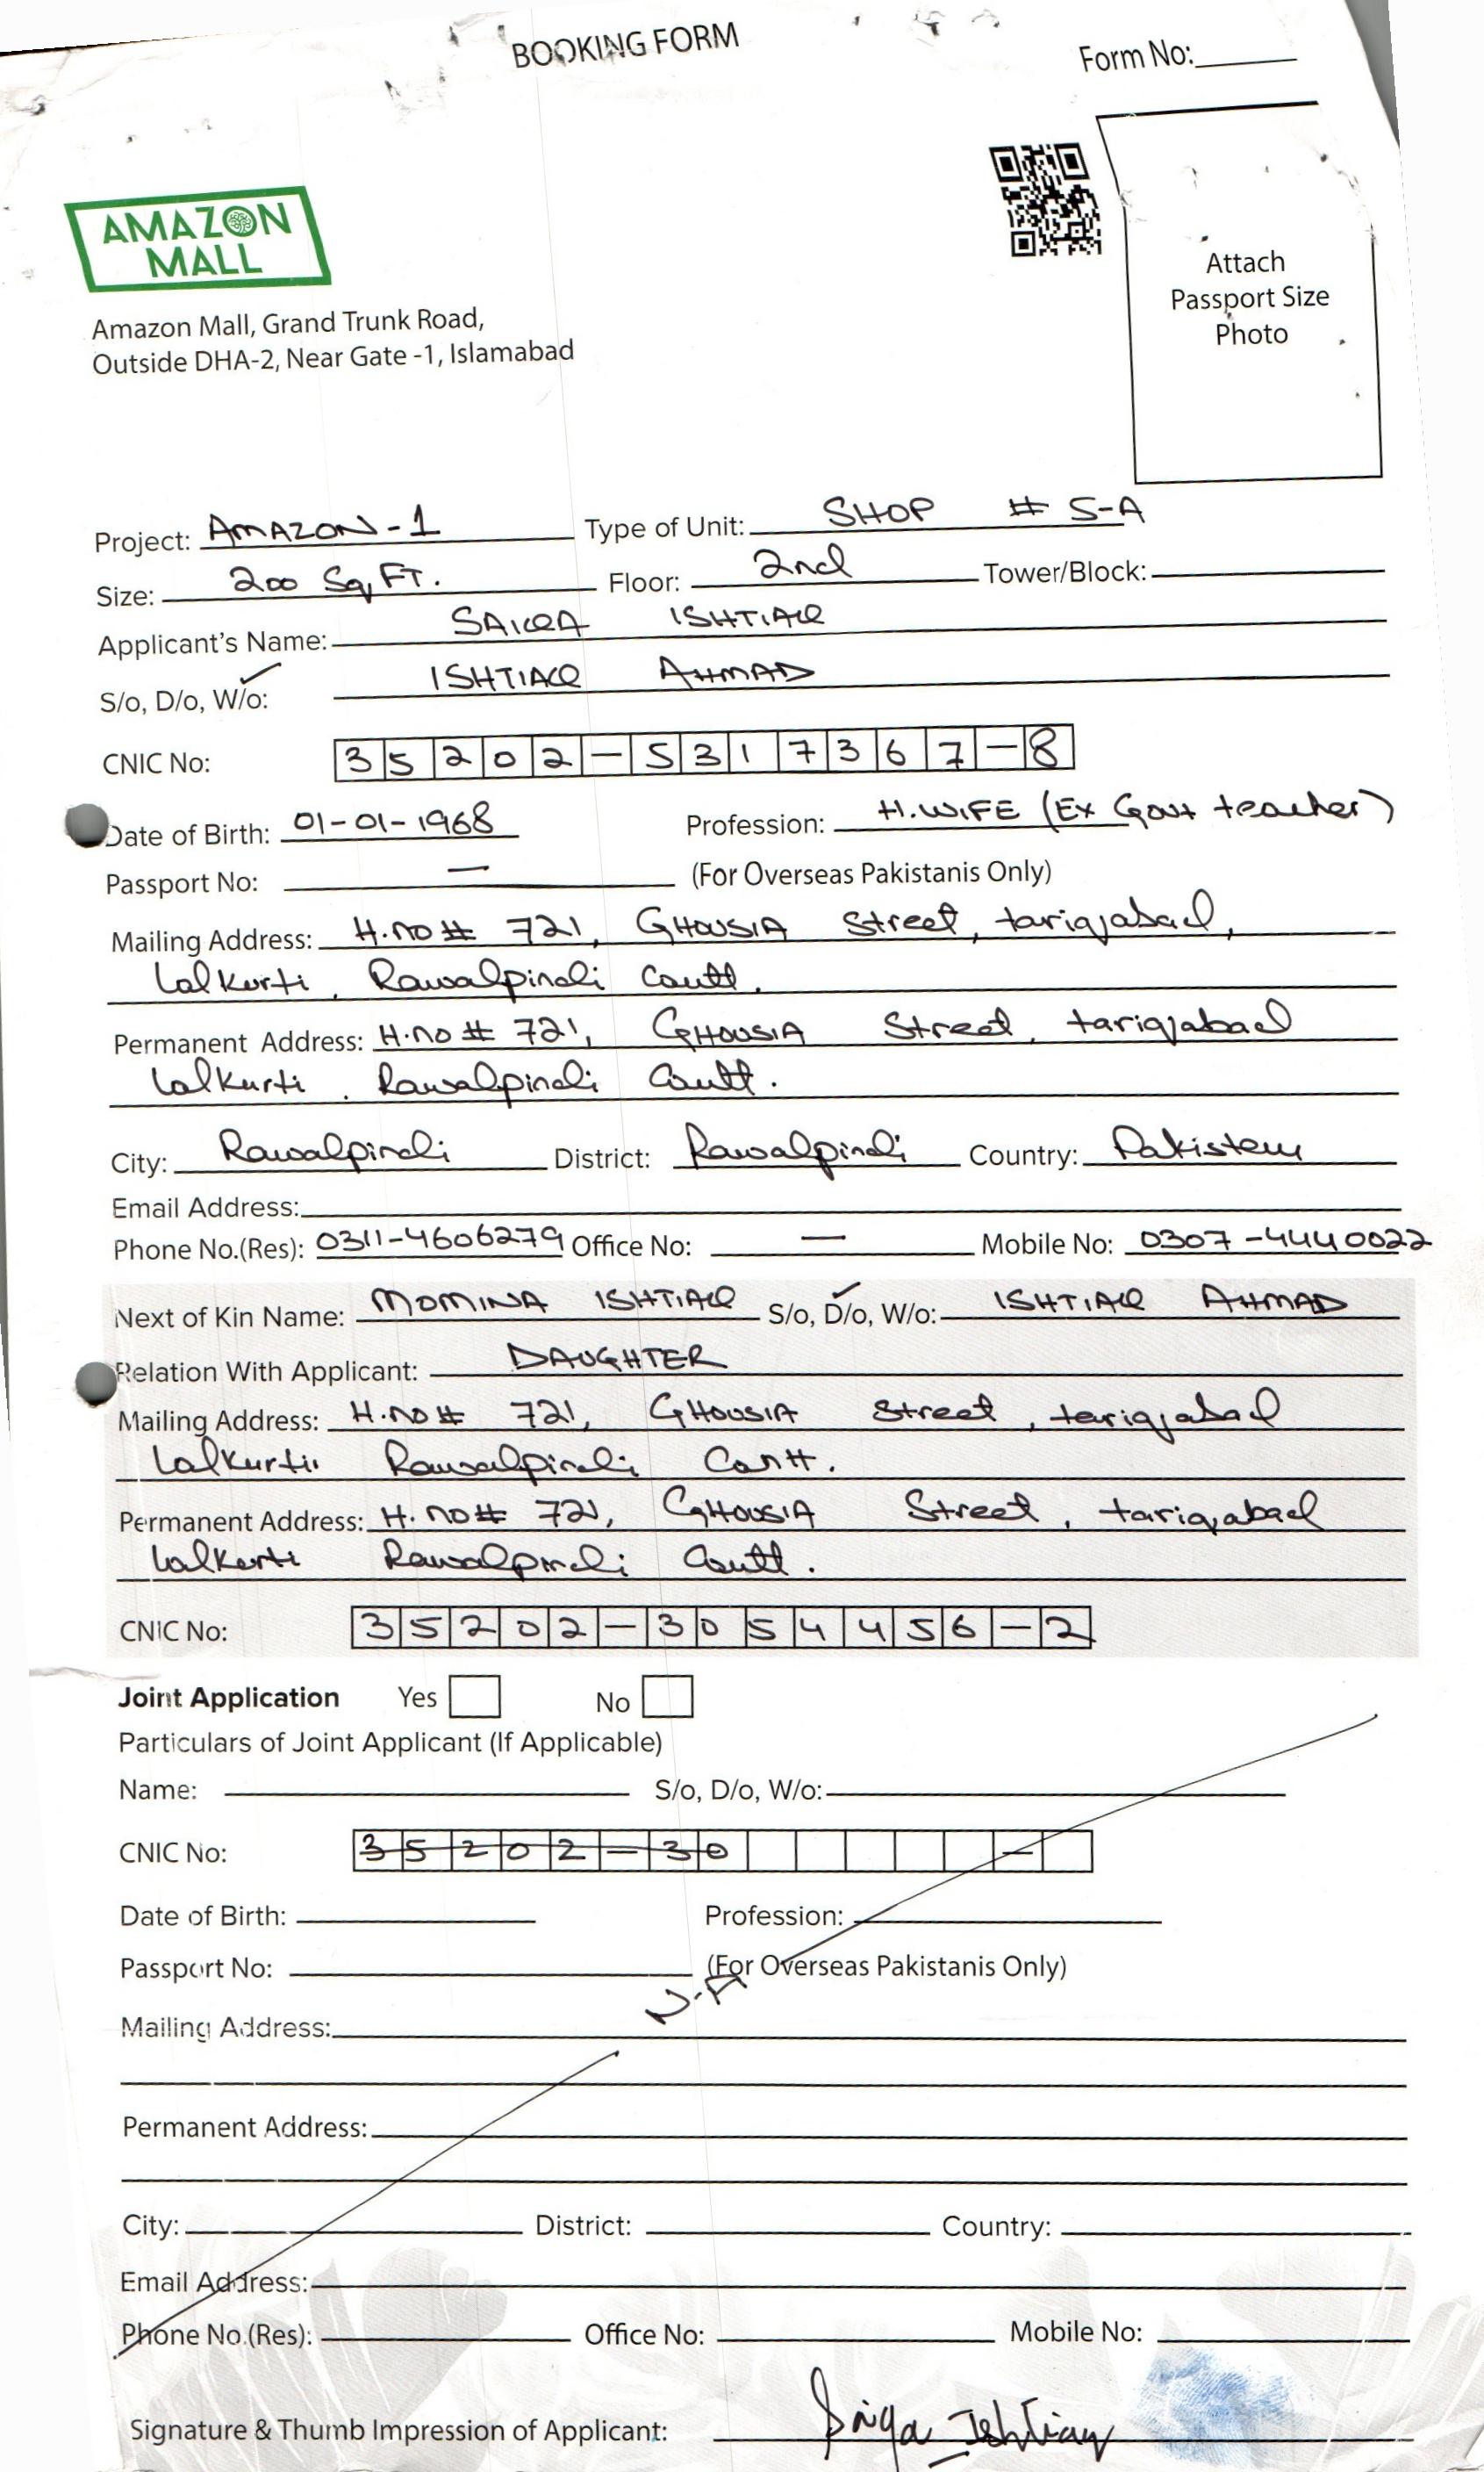 BOOKING FORM
Form No:
AMAZON
MALL
Attach
Passport Size
Photo
Amazon Mall, Grand Trunk Road,
Outside DHA-2, Near Gate -1, Islamabad
Project: AMAZON-1 Type of Unit: SHOP # 5-A
Size: 200 Sq,FT. Floor: 2nd Tower/Block:
Applicant's Name: SAIQA ISHTIAQ
S/o, D/o, W/o: ISHTIAQ AHMAD
CNIC No: 35202-5317367-8
Date of Birth: 01-01-1968 Profession: H.WIFE (Ex Govt teacher)
Passport No: — (For Overseas Pakistanis Only)
Mailing Address: H.no # 721, GHOUSIA Street, tariqabad,
Lalkurti, Rawalpindi Cantt.
Permanent Address: H.no # 721, GHOUSIA Street, tariqabad
Lalkurti, Rawalpindi Cantt.
City: Rawalpindi District: Rawalpindi Country: Pakistan
Email Address:
Phone No.(Res): 0311-4606279 Office No: — Mobile No: 0307-4440022
Next of Kin Name: MOMINA ISHTIAQ S/o, D/o, W/o: ISHTIAQ AHMAD
Relation With Applicant: DAUGHTER
Mailing Address: H.no # 721, GHOUSIA Street, tariqabad
Lalkurti Rawalpindi Cantt.
Permanent Address: H.no # 721, GHOUSIA Street, tariqabad
Lalkurti Rawalpindi Cantt.
CNIC No: 35202-3054456-2
Joint Application Yes No
Particulars of Joint Applicant (If Applicable)
Name: S/o, D/o, W/o:
CNIC No: 35202-30 -
Date of Birth: Profession:
Passport No: (For Overseas Pakistanis Only)
N.A
Mailing Address:
Permanent Address:
City: District: Country:
Email Address:
Phone No.(Res): Office No: Mobile No:
Signature & Thumb Impression of Applicant: Saiqa Ishtiaq